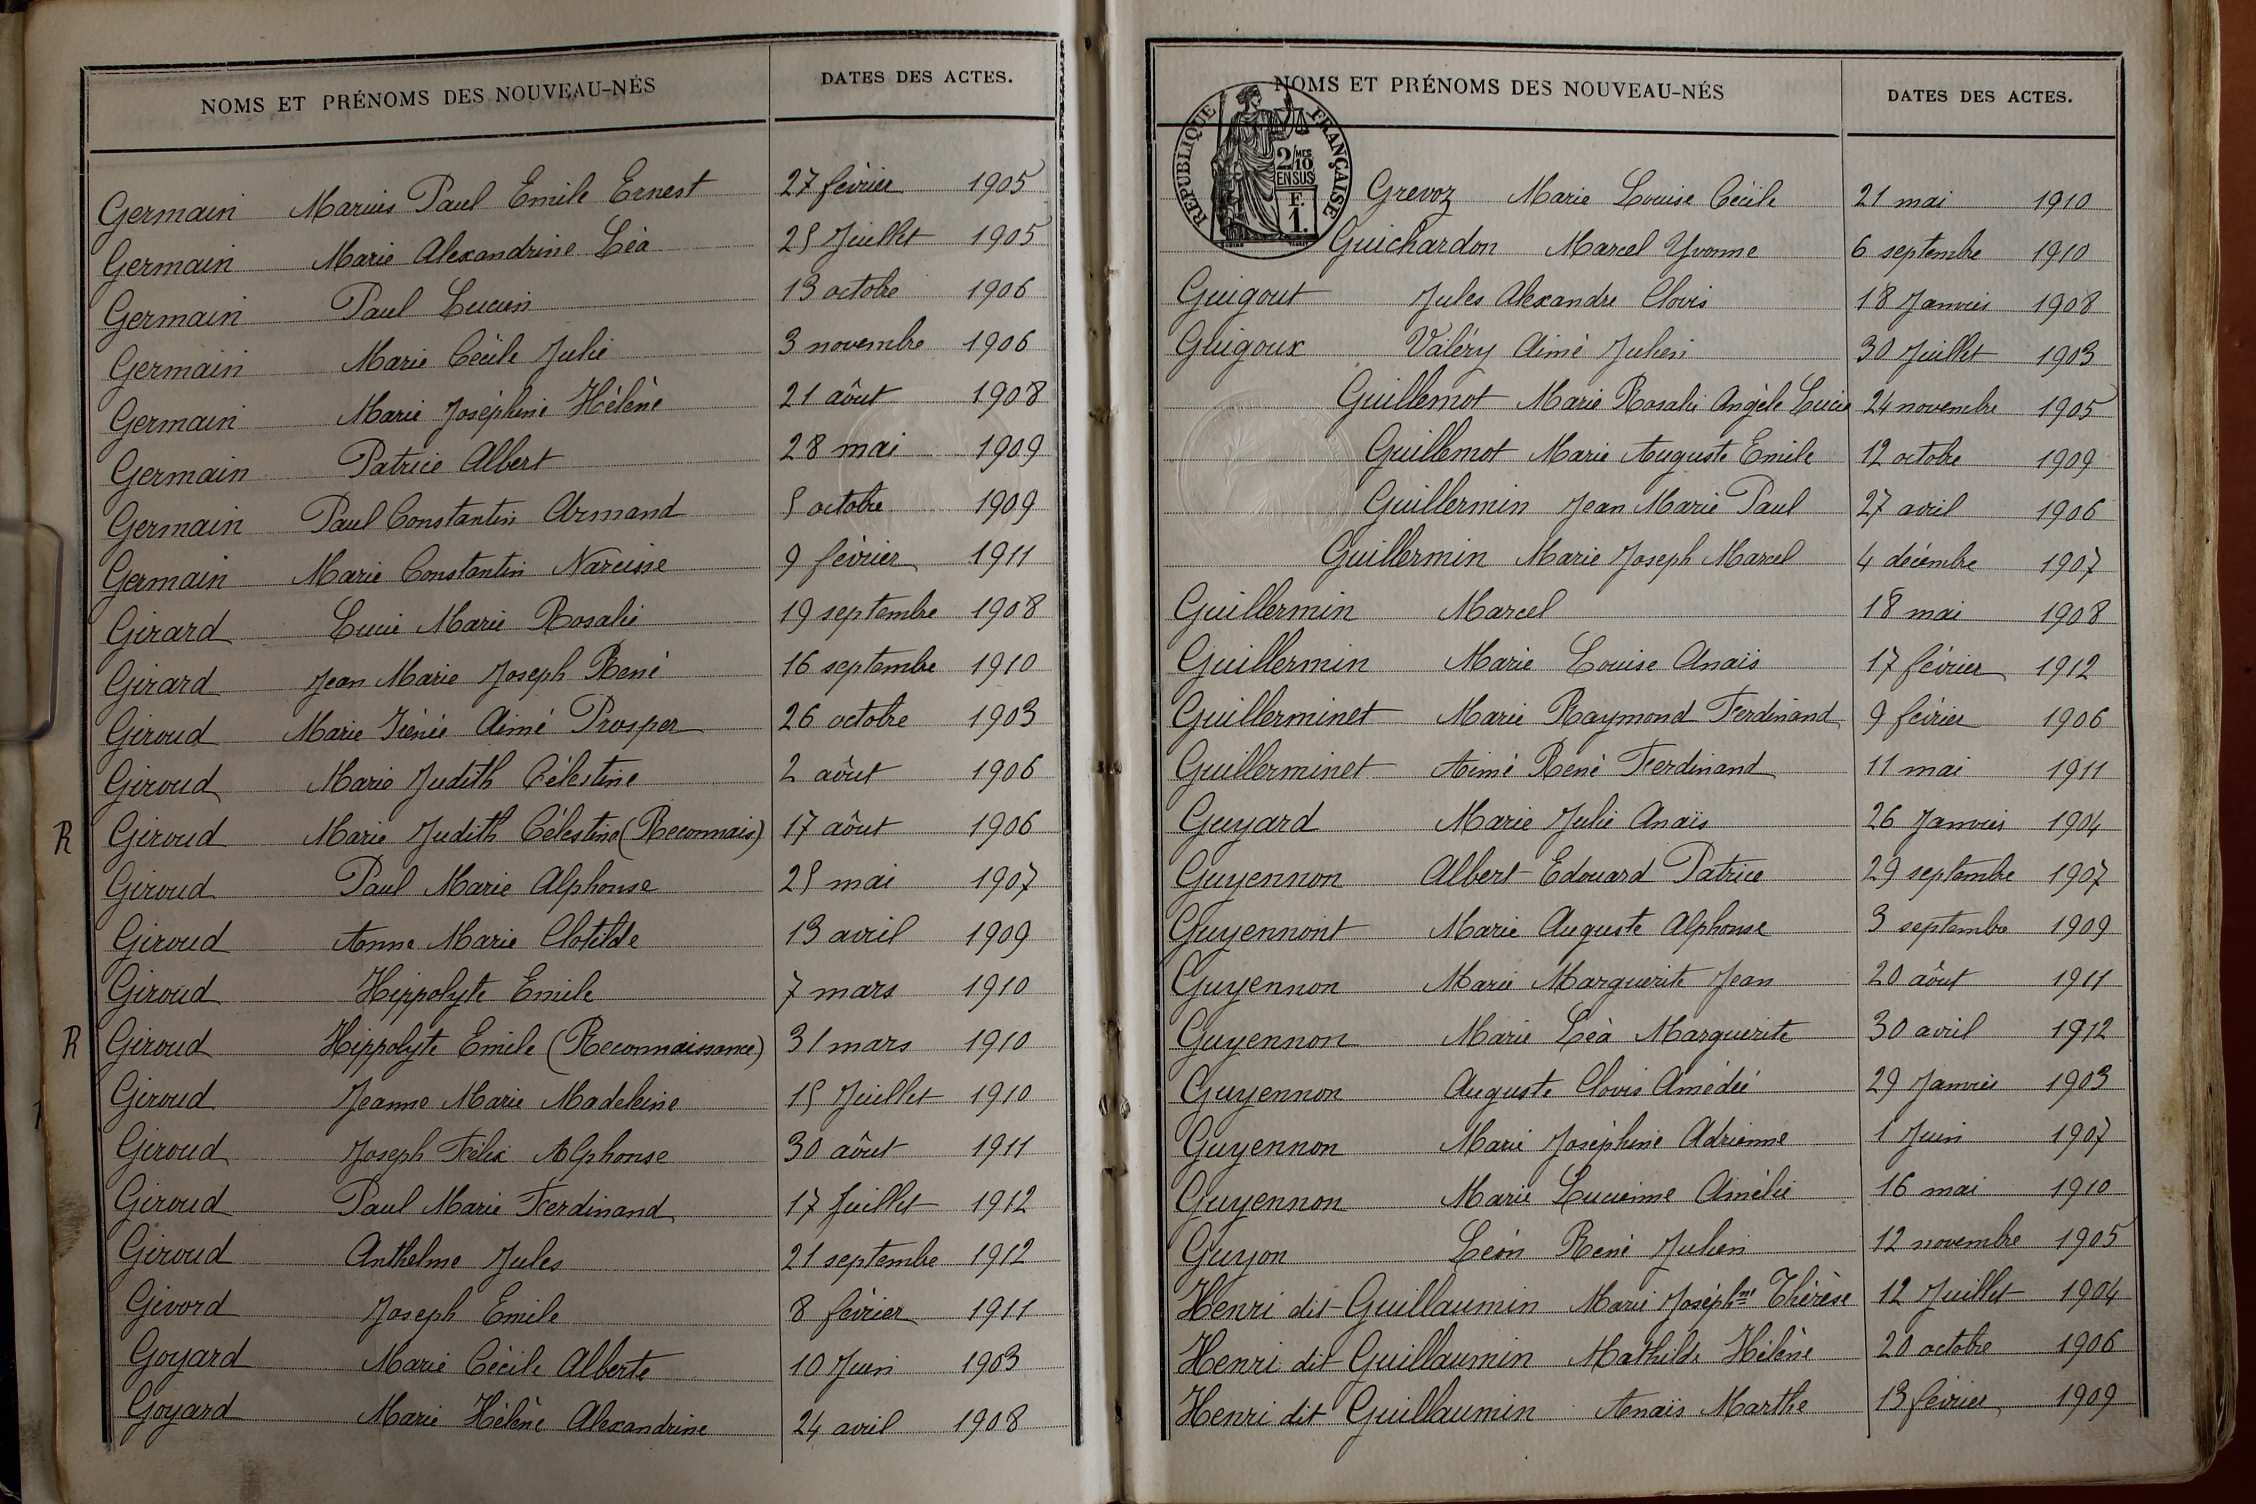 NOMS ET PRÉNOMS DES NOUVEAU-NÉS DATES DES ACTES.
Germain Marius Paul Emile Ernest 27 février 1905
Germain Marie Alexandrine Léa 25 Juillet 1905
Germain Paul Lucien 13 octobre 1906
Germain Marie Cécile Julie 3 novembre 1906
Germain Marie Joséphine Hélène 21 aôut 1908
Germain Patrice Albert 28 mai 1909
Germain Paul Constantin Armand 5 octobre 1909
Germain Marie Constantin Narcisse 9 février 1911
Girard Lucie Marie Rosalie 19 septembre 1908
Girard Jean Marie Joseph René 16 septembre 1910
Giroud Marie Irénée Aimé Prosper 26 octobre 1903
Giroud Marie Judith Célestine 2 aôut 1906
R Giroud Marie Judith Célestine (Reconnais) 17 aôut 1906
Giroud Paul Marie Alphonse 25 mai 1907
Giroud Anne Marie Clotilde 13 avril 1909
Giroud Hippolyte Emile 7 mars 1910
R Giroud Hippolyte Emile (Reconnaissance) 31 mars 1910
Giroud Jeanne Marie Madeleine 15 Juillet 1910
Giroud Joseph Félix Alphonse 30 aôut 1911
Giroud Paul Marie Ferdinand 17 Juillet 1912
Giroud Anthelme Jules 21 septembre 1912
Givord Joseph Emile 8 février 1911
Goyard Marie Cécile Alberte 10 Juin 1903
Goyard Marie Hélène Alexandrine 24 avril 1908
NOMS ET PRÉNOMS DES NOUVEAU-NÉS DATES DES ACTES.
RÉPUBLIQUE FRANÇAISE
2/10 MES
EN SUS
F.
1.
Grevoz Marie Louise Cécile 21 mai 1910
Guichardon Marcel Yvonne 6 septembre 1910
Guigout Jules Alexandre Clovis 18 Janvier 1908
Guigoux Valéry Aimé Julien 30 Juillet 1903
Guillemot Marie Rosalie Angèle Lucie 24 novembre 1905
Guillemot Marie Auguste Emile 12 octobre 1909
Guillermin Jean Marie Paul 27 avril 1906
Guillermin Marie Joseph Marcel 4 décembre 1907
Guillermin Marcel 18 mai 1908
Guillermin Marie Louise Anaïs 17 février 1912
Guillerminet Marie Raymond Ferdinand 9 février 1906
Guillerminet Aimé René Ferdinand 11 mai 1911
Guyard Marie Julie Anaïs 26 Janvier 1904
Guyennon Albert Edouard Patrice 29 septembre 1907
Guyennont Marie Auguste Alphonse 3 septembre 1909
Guyennon Marie Marguerite Jean 20 aôut 1911
Guyennon Marie Léa Marguerite 30 avril 1912
Guyennon Auguste Clovis Amédée 29 Janvier 1903
Guyennon Marie Joséphine Adrienne 1 Juin 1907
Guyennon Marie Lucienne Amélie 16 mai 1910
Guyon Léon René Julien 12 novembre 1905
Henri dit Guillaumin Marie Joséph.ne Thérèse 12 Juillet 1904
Henri dit Guillaumin Mathilde Hélène 20 octobre 1906
Henri dit Guillaumin Anaïs Marthe 13 février 1909